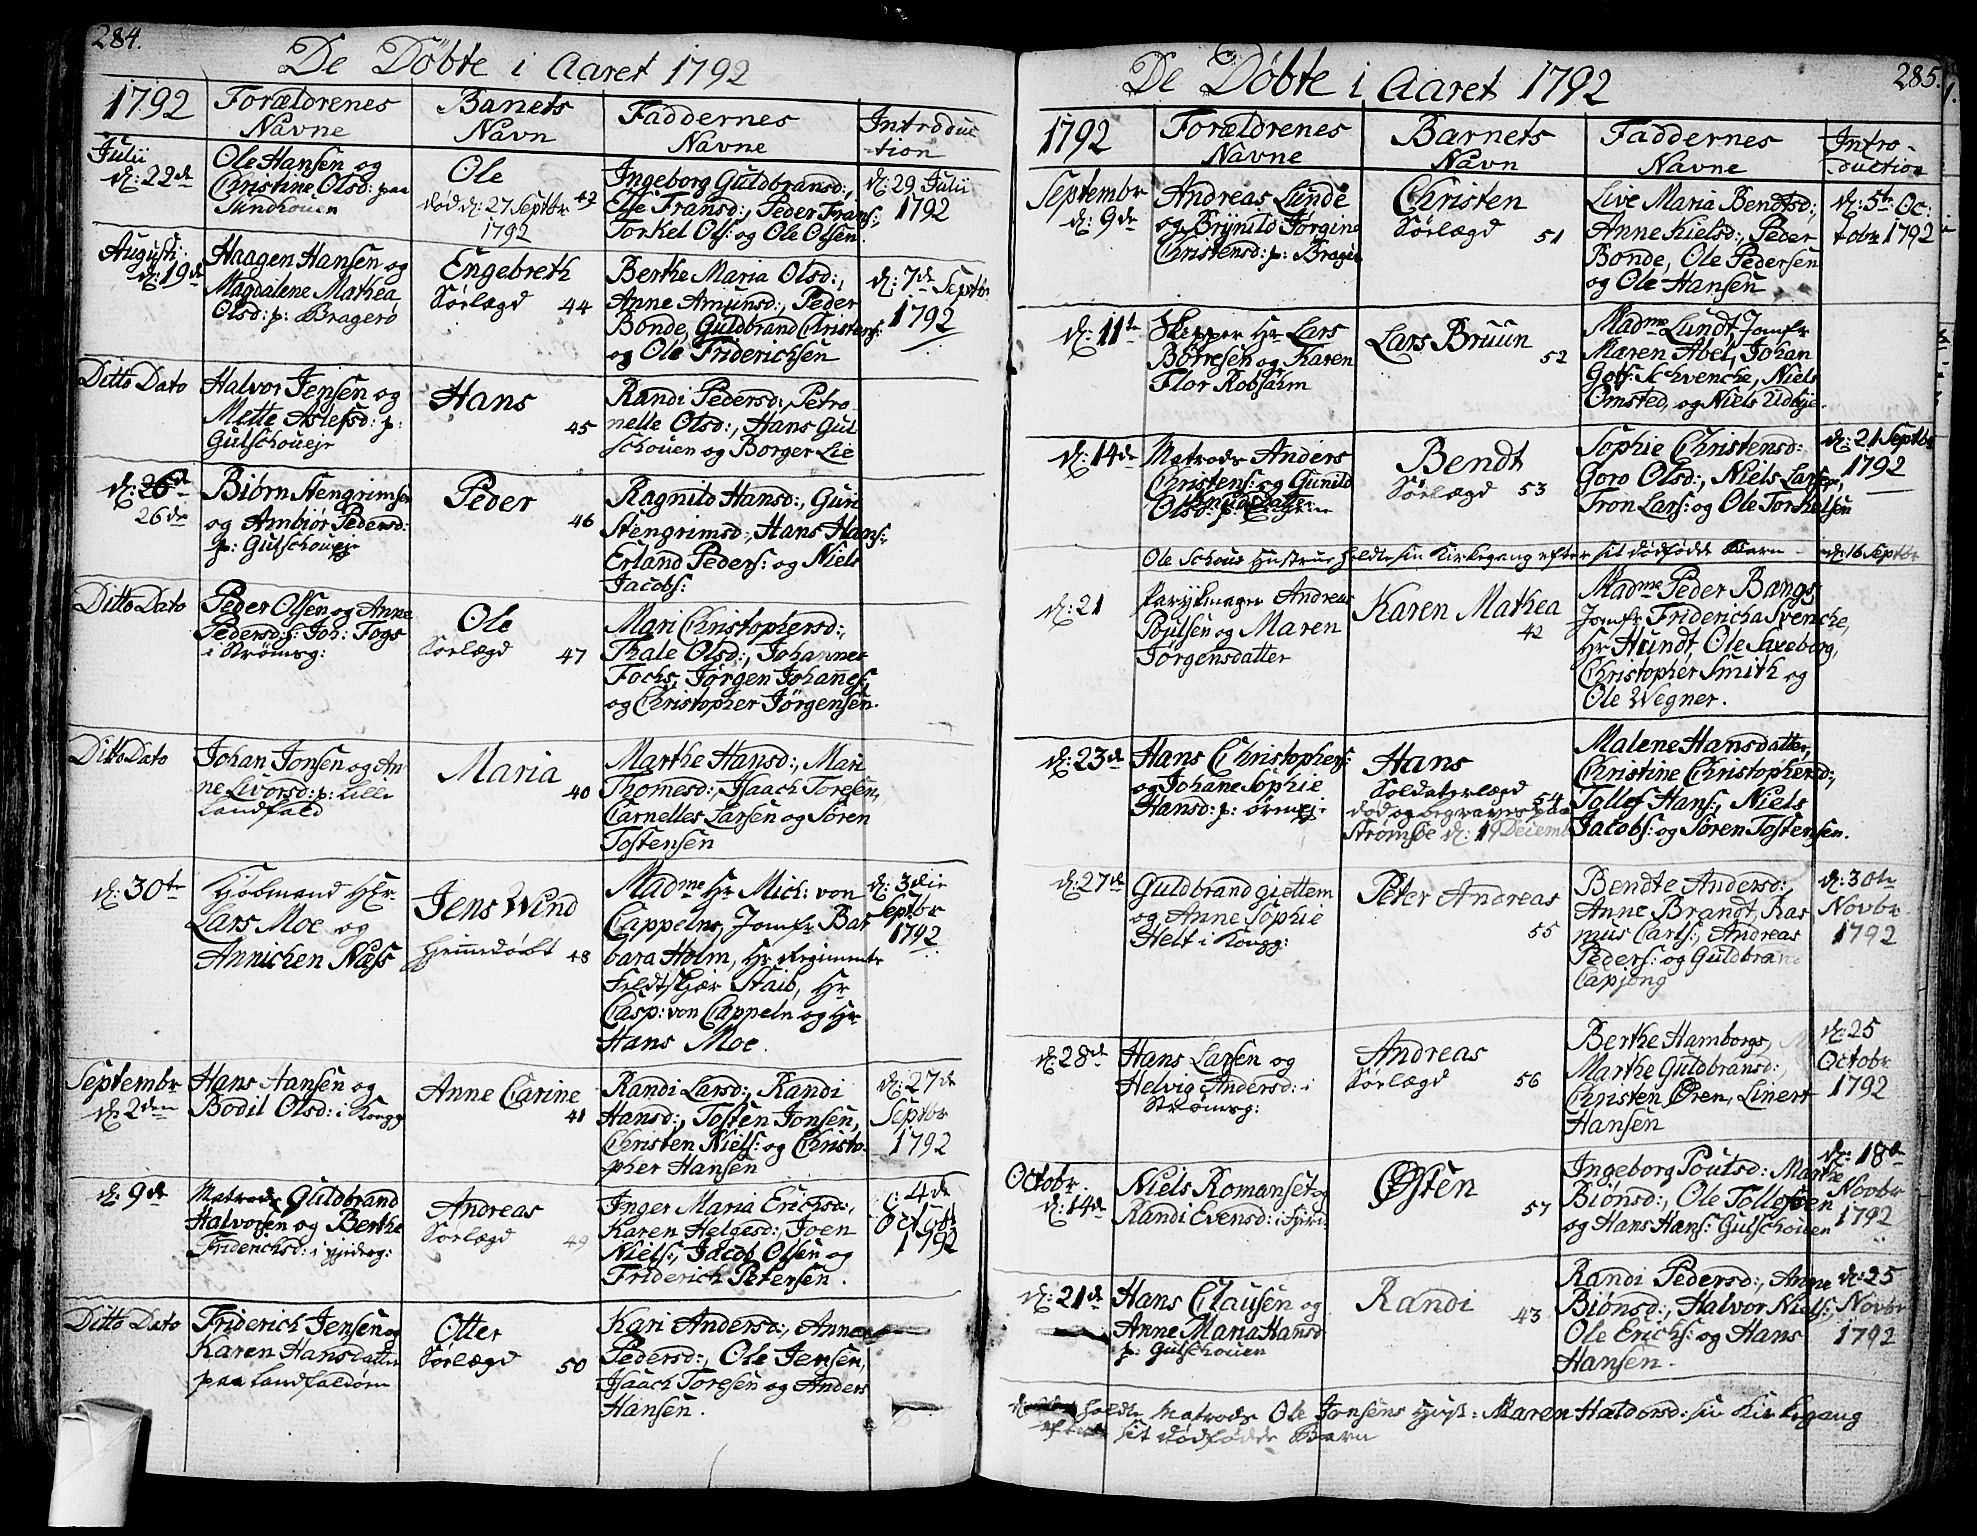 284.
De Döbte i Aaret 1792
1792
Forældrenes
Navne
Barnets
Navn
Faddernes
Navne
Introduc
tion
Julii
d: 22de
Ole Hansen og
Christine Olsd: paa
Sundhouen
Ole
död d: 27 Septbr 43
1792
Ingeborg Guldbransd:,
Else Fransd:, Peder Frans:
Torkel Ols: og Ole Olsen
d: 29 Julii
1792
Augusti
d: 19de
Haagen Hansen og
Magdalene Mathea
Olsd: p: Bragerö
Engebreth
Sörlægd 44
Berthe Maria Olsd:,
Anne Amunsd:, Peder
Bonde, Guldbrand Christens:
og Ole Friderichsen
d: 7de Septbr
1792
Ditto Dato
Halvor Jensen og
Mette Aslefsd: p:
Gulschoueje
Hans
45
Randi Pedersd:, Petro-
nelle Olsd:, Hans Gul
schouen og Borger Lie
d: 26de
26de
Biörn Stengrimsen
og Ambiör Pedersd:
p: Gulschoueje
Peder
46
Ragnild Hansd:, Guri
Stengrimsd:, Hans Hans:
Erland Peders: og Niels
Jacobs:
Ditto Dato
Peder Olsen og Anne
Pedersd: f: Joh: Fogs
i Strömsg:
Ole
Sörlægd 47
Mari Christophersd:,
Thale Olsd:, Johannes
Fochs, Jörgen Johannes:,
og Christopher Jörgensen.
Ditto Dato
Johan Jonsen og An
ne Livorsd: p: lille
Landfald
Maria
40
Marthe Hansd:, Mari
Thomesd:, Isaach Toresen,
Carnelles Larsen og Sören
Tostensen
d: 30te
Kjöbmand Hr
Lars Moe og
Annichen Næss
Jens Wind
hjemmedöbt 48
Madme Hr Mich: von
Cappelns, Jomfr Bar
bara Holm, Hr Regiments
Feldtskjær Staib, Hr
Casp: von Cappeln og Hr
Hans Moe.
d: 3die
Septbr
1792
Septembr
d: 2den
Hans Hansen og
Bodil Olsd: i Kongg
Anne Carine
41
Randi Larsd:, Randi
Hansd:, Tosten Jonsen,
Christen Niels: og Christo-
pher Hansen
d: 27de
Septbr
1792
d: 9de
Matrods Guldbrand
Halvorsen og Berthe
Friderichsd: i
Andreas
Sörlægd 49
Inger Maria Erichsd:,
Karen Helgesd:, Joen
Niels:, Jacob Olsen og
Friderich Petersen.
d: 4de
Octobr
1792
Ditto Dato
Friderich Jensen og
Karen Hansdatter
paa Landfaldörn
Otter
Sörlægd 50
Kari Andersd:, Anne
Pedersd:, Ole Jensen,
Isaach Toresen og Anders
Hansen.
285.
De Döbte i Aaret 1792
1792
Forældrenes
Navne
Barnets
Navn
Faddernes
Navne
Intro-
duction
Septembr
d: 9de
Andreas Lunde
og Brynild Jörgine
Christensd: p: Bragen
Christen
Sörlægd 51
Live Maria Bendtsd:,
Anne Kielsd:, Peder
Bonde, Ole Pedersen
og Ole Hansen
d: 5te Oc:
tobr 1792
d: 11te
Skipper Hr Lars
Börresen og Karen
Flor Robsahm
Lars Bruun
52
Madme Lundt, Jomfr
Maren Abel, Johan
Gotf: Schvencke, Niels
Omsted, og Niels Udbye.
d: 14de
Matrods Anders
Christens: og Gunild
Olsd: p:
Bendt
Sörlægd 53
Sophie Christensd:
Goro Olsd:, Niels Larsen,
Tron Lars: og Ole Torkelsen
d: 21 Septbr
1792
Ole Schous Hustrue holdte sin Kirkegang efter sit dödfödde Barn - d: 16 Septbr
d: 21
Parykmager Andreas
Poulsen og Maren
Jörgensdatter
Karen Mathea
42
Madme Peder Bangs,
Jomfr Fridericha Svencke,
Hr Hundt, Ole Saxeborg,
Christopher Smith og
Ole Wegner.
d: 23de
Hans Christophers:
og Johanne Sophie
Hansd: p: örneje
Hans
Soldaterlægd
54
död og begraves paa
Strömsöe d: 19 Decemb
Malene Hansdatter,
Christine Christophersd:,
Tollef Hans:, Niels
Jacobs: og Sören Tostensen.
d: 27de
Guldbrand giettem
og Anne Sophie
Helt i Kongg:
Peter Andreas
55
Bendte Andersd:,
Anne Brandt, Ras
mus Carls:, Andreas
Peders: og Guldbrand
Capjong
d: 30te
Novbr
1792
d: 28de
Hans Larsen og
Helvig Andersd: i
Strömsg:
Andreas
Sörlægd 56
Berthe Hamborgs,
Marthe Guldbransd:,
Christen Ören, Linert
Hansen
d: 25
Octobr
1792
Octobr.
d: 14de
Niels Romanset og
Randi Evensd: i
Östen
57
Ingeborg Poulsd: Marthe
Biönsd:, Ole Tollefsen
og Hans Hans: Gulschouen
d: 18de
Novbr
1792
d: 21de
Hans Clausen og
Anne Maria Hansd:
p: Gulschouen
Randi
43
Randi Pedersd:, Anne
Biönsd:, Halvor Niels:,
Ole Erichs: og Hans
Hansen.
d: 25
Novbr
1792
holdte Matrods Ole Jensens Hust: Maren Haldorsd: sin Kirkegang
efter sit dödfödde Barn